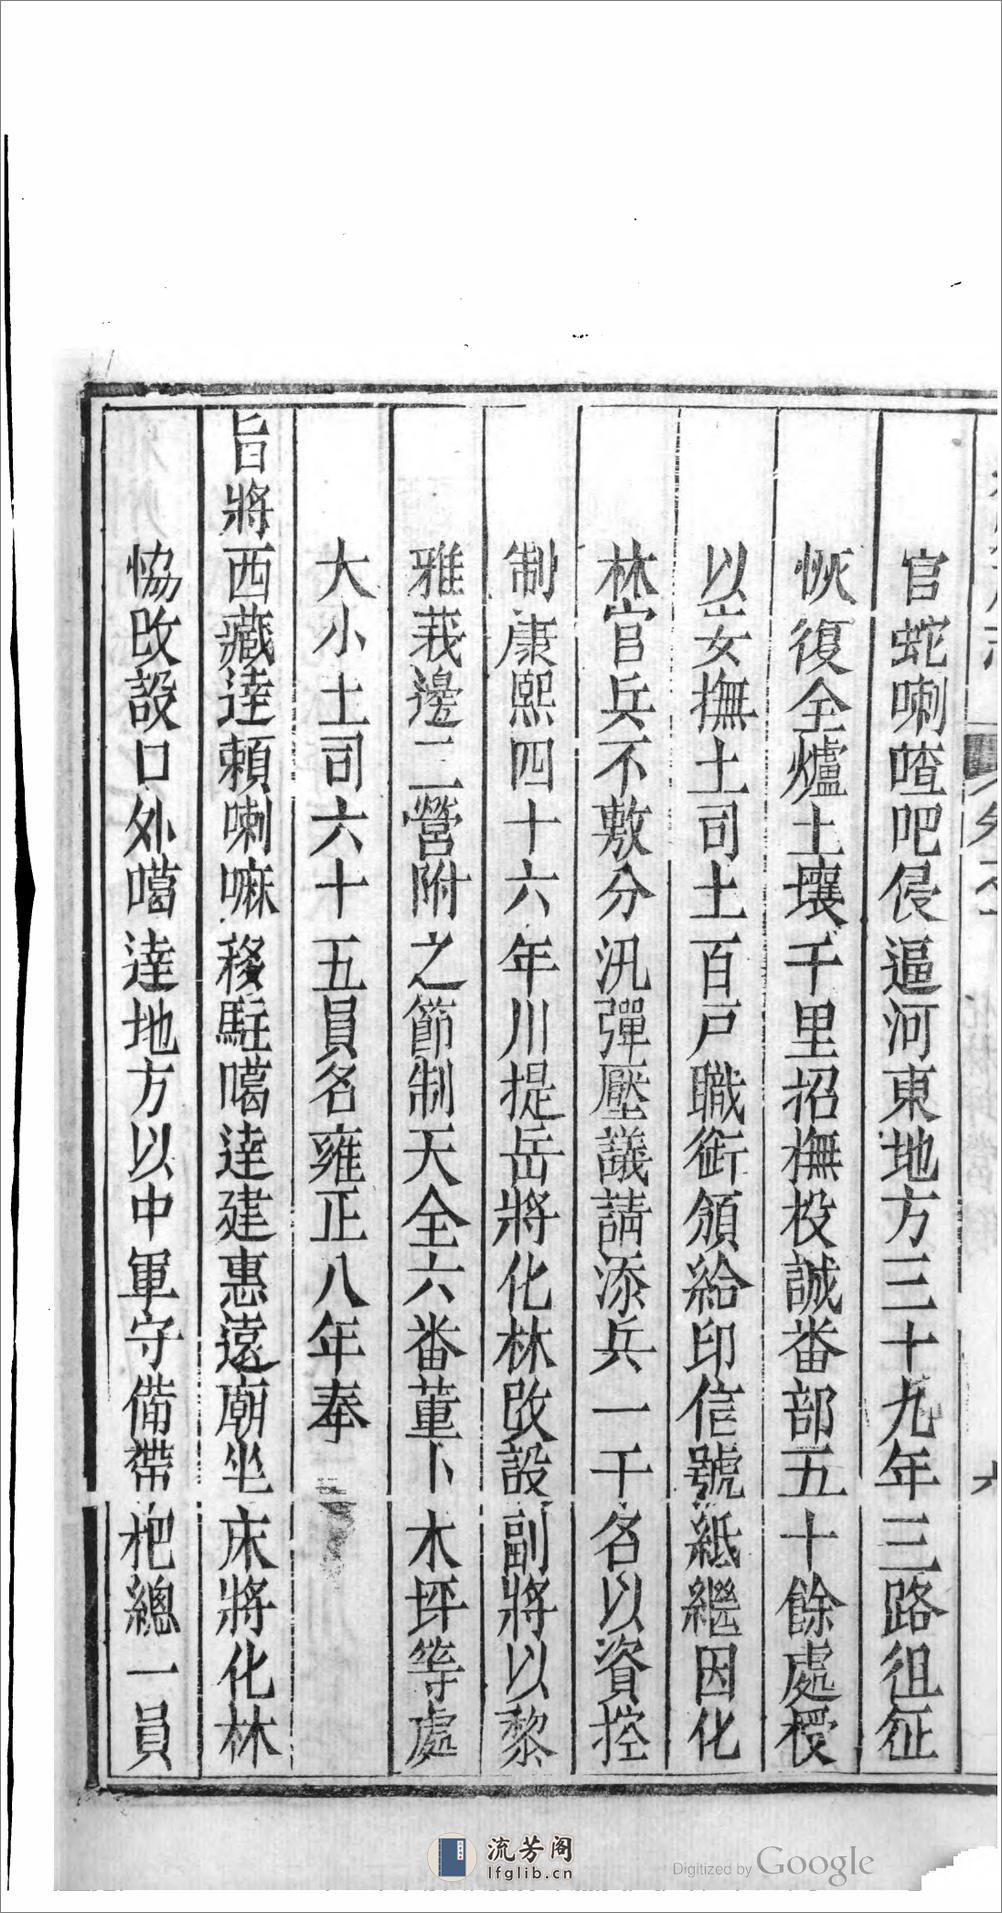 官蛇喇喳吧侵逼河東地方三十九年三路徂征
恢復全爐土壤千里招撫投誠番部五十餘處授
以安撫土司土百戸職銜頒給印信號紙繼因化
林官兵不敷分汛彈壓議請添兵一千名以資控
制康熙四十六年川提岳將化林改設副將以黎
雅莪邊二營附之節制天全六番董卜木坪等處
大小土司六十五員名雍正八年奉
旨將西藏達賴喇嘛移駐噶達建惠遠廟坐床將化林
恊改設口外噶達地方以中軍守備帶把總一員
流芳阁
lfglib.cn
Digitized by Google